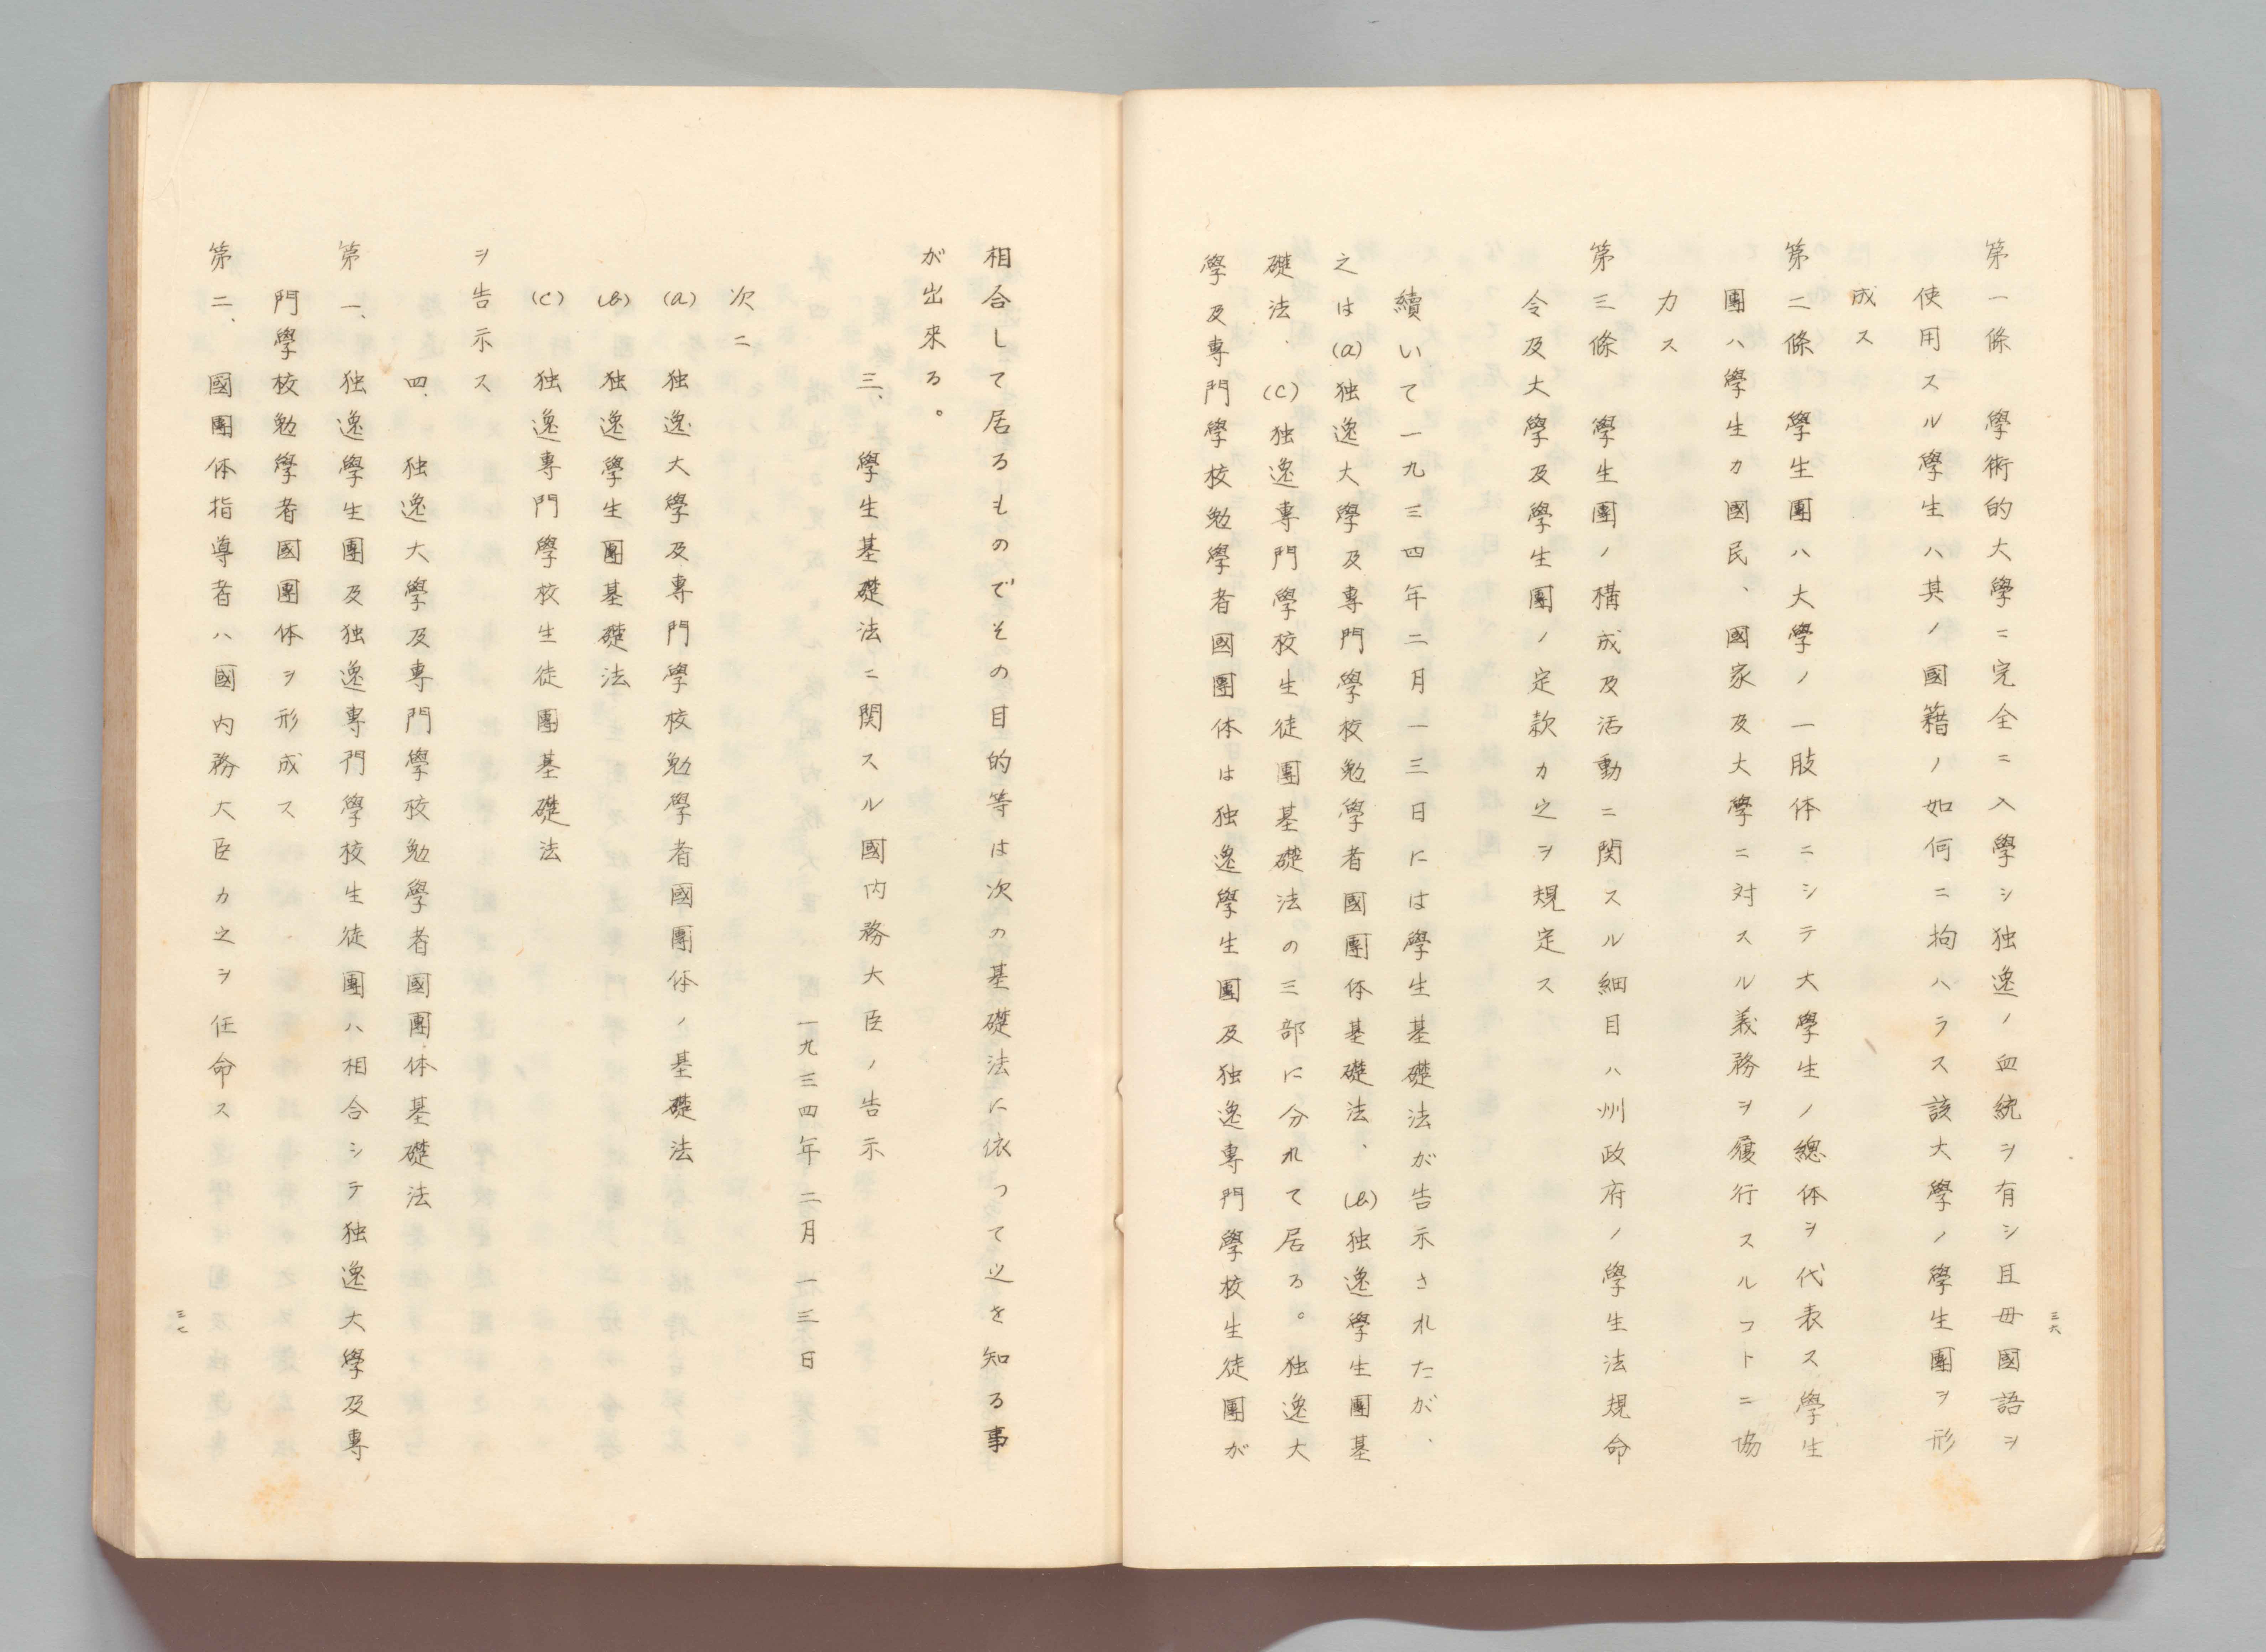 第一條　學術的大學ニ完全ニ入學シ独逸ノ血統ヲ有シ且毋國語ヲ
使用スル學生ハ其ノ國籍ノ如何ニ拘ハラス該大學ノ學生團ヲ形
成ス
第二條　學生團ハ大學ノ一肢体ニシテ大學生ノ總体ヲ代表ス學生
團ハ學生カ國民、國家及大學ニ対スル義務ヲ履行スルコトニ協
力ス
第三條　學生團ノ構成及活動ニ関スル細目ハ州政府ノ學生法規命
令及大學及學生團ノ定款カ之ヲ規定ス
續いて一九三四年二月一三日には學生基礎法が告示されたが、
之は(a)独逸大學及専門學校勉學者國團体基礎法、(b)独逸學生團基
礎法、(c)独逸専門學校生徒團基礎法の三部に分れて居る。独逸大
學及専門學校勉學者國團体は独逸學生團及独逸専門學校生徒團が
三六
相合して居るものでその目的等は次の基礎法に依って之を知る事
が出來る。
三、學生基礎法ニ関スル國内務大臣ノ告示
一九三四年二月一三日
次ニ
(a)　独逸大學及専門學校勉學者國團体ノ基礎法
(b)　独逸學生團基礎法
(c)　独逸専門學校生徒團基礎法
ヲ告示ス
四、独逸大學及専門學校勉學者國團体基礎法
第一、独逸學生團及独逸専門學校生徒團ハ相合シテ独逸大學及専
門學校勉學者國團体ヲ形成ス
第二、國團体指導者ハ國内務大臣カ之ヲ任命ス
三七